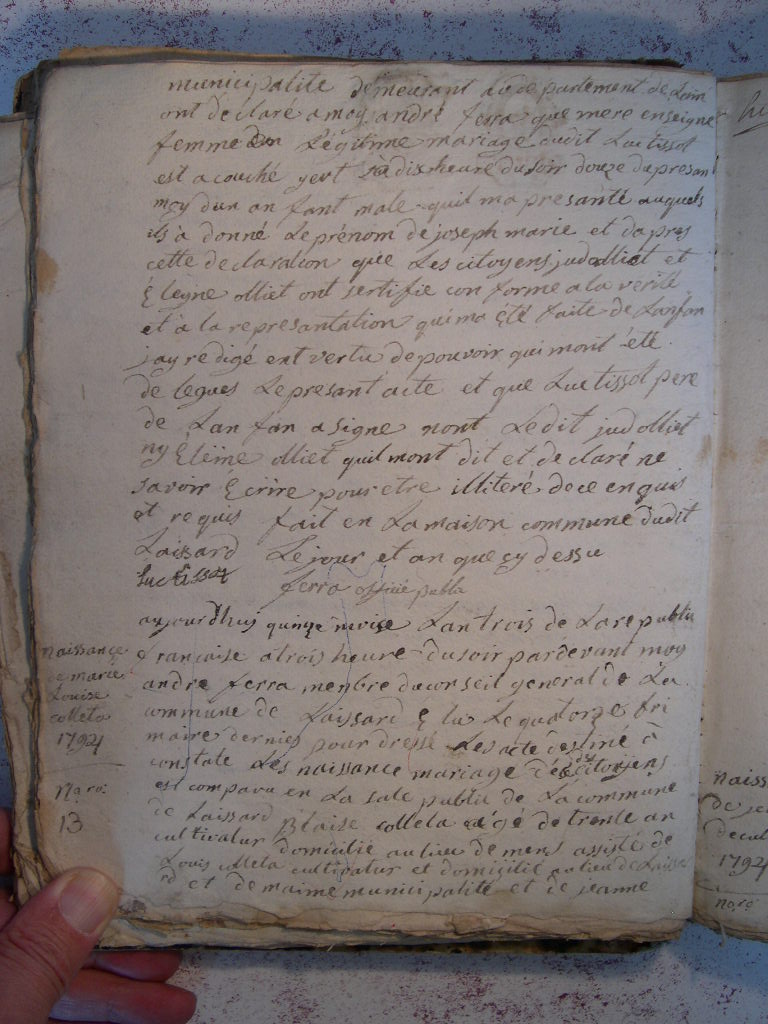 municipalite demeurant au departement de Lain
ont declaré a moy andré ferra que mere enseigne
femme en Légitime mariage dudit Luc tissot
est acouché yert à dix heure du soir douze du presan
moy dun an fant male quil ma presanté auquels
ils a donné Le prénom de joseph marie et dapres
cette declaration que Les citoyens jud olliet et
olliet ont sertifie con forme a la verite
et a la represantation qui ma été faite de Lanfan
jay redigé ent vertu de pouvoir qui mont été
de legues Le presant acte et que Luc tissot pere
de Lan fan a signe nont Ledit jud olliet
ny olliet quil mont dit et declaré ne
savoir Ecrire pour etre illiteré de ce en quis
et requis fait en La maison commune dudit
Laissard Le jour et an que cy dessu
Luc tissot ferra officié publa
aujourdhuis quinze nivise Lan trois de La republia
francaise a trois heure du soir pardevant moy
naissance
de marie
Louise
colleta
1794
naro:
13
andre ferra menbre du conseil general de La
commune de Laissard E lu Le quatorze fri
maire dernies pour dressé Les acte destiné à
constate Les naissance mariage décé des citoyens
est comparu en La sale publa de La commune
de Laissard Blaise colleta agé de trente an
cultivatur domicilié au lieu de mens assisté de
Louis colleta cultivatur et domicilié au lieu de Laissa
rd et de maime municipalité et de jeanne
naiss
de je
1794
naro: